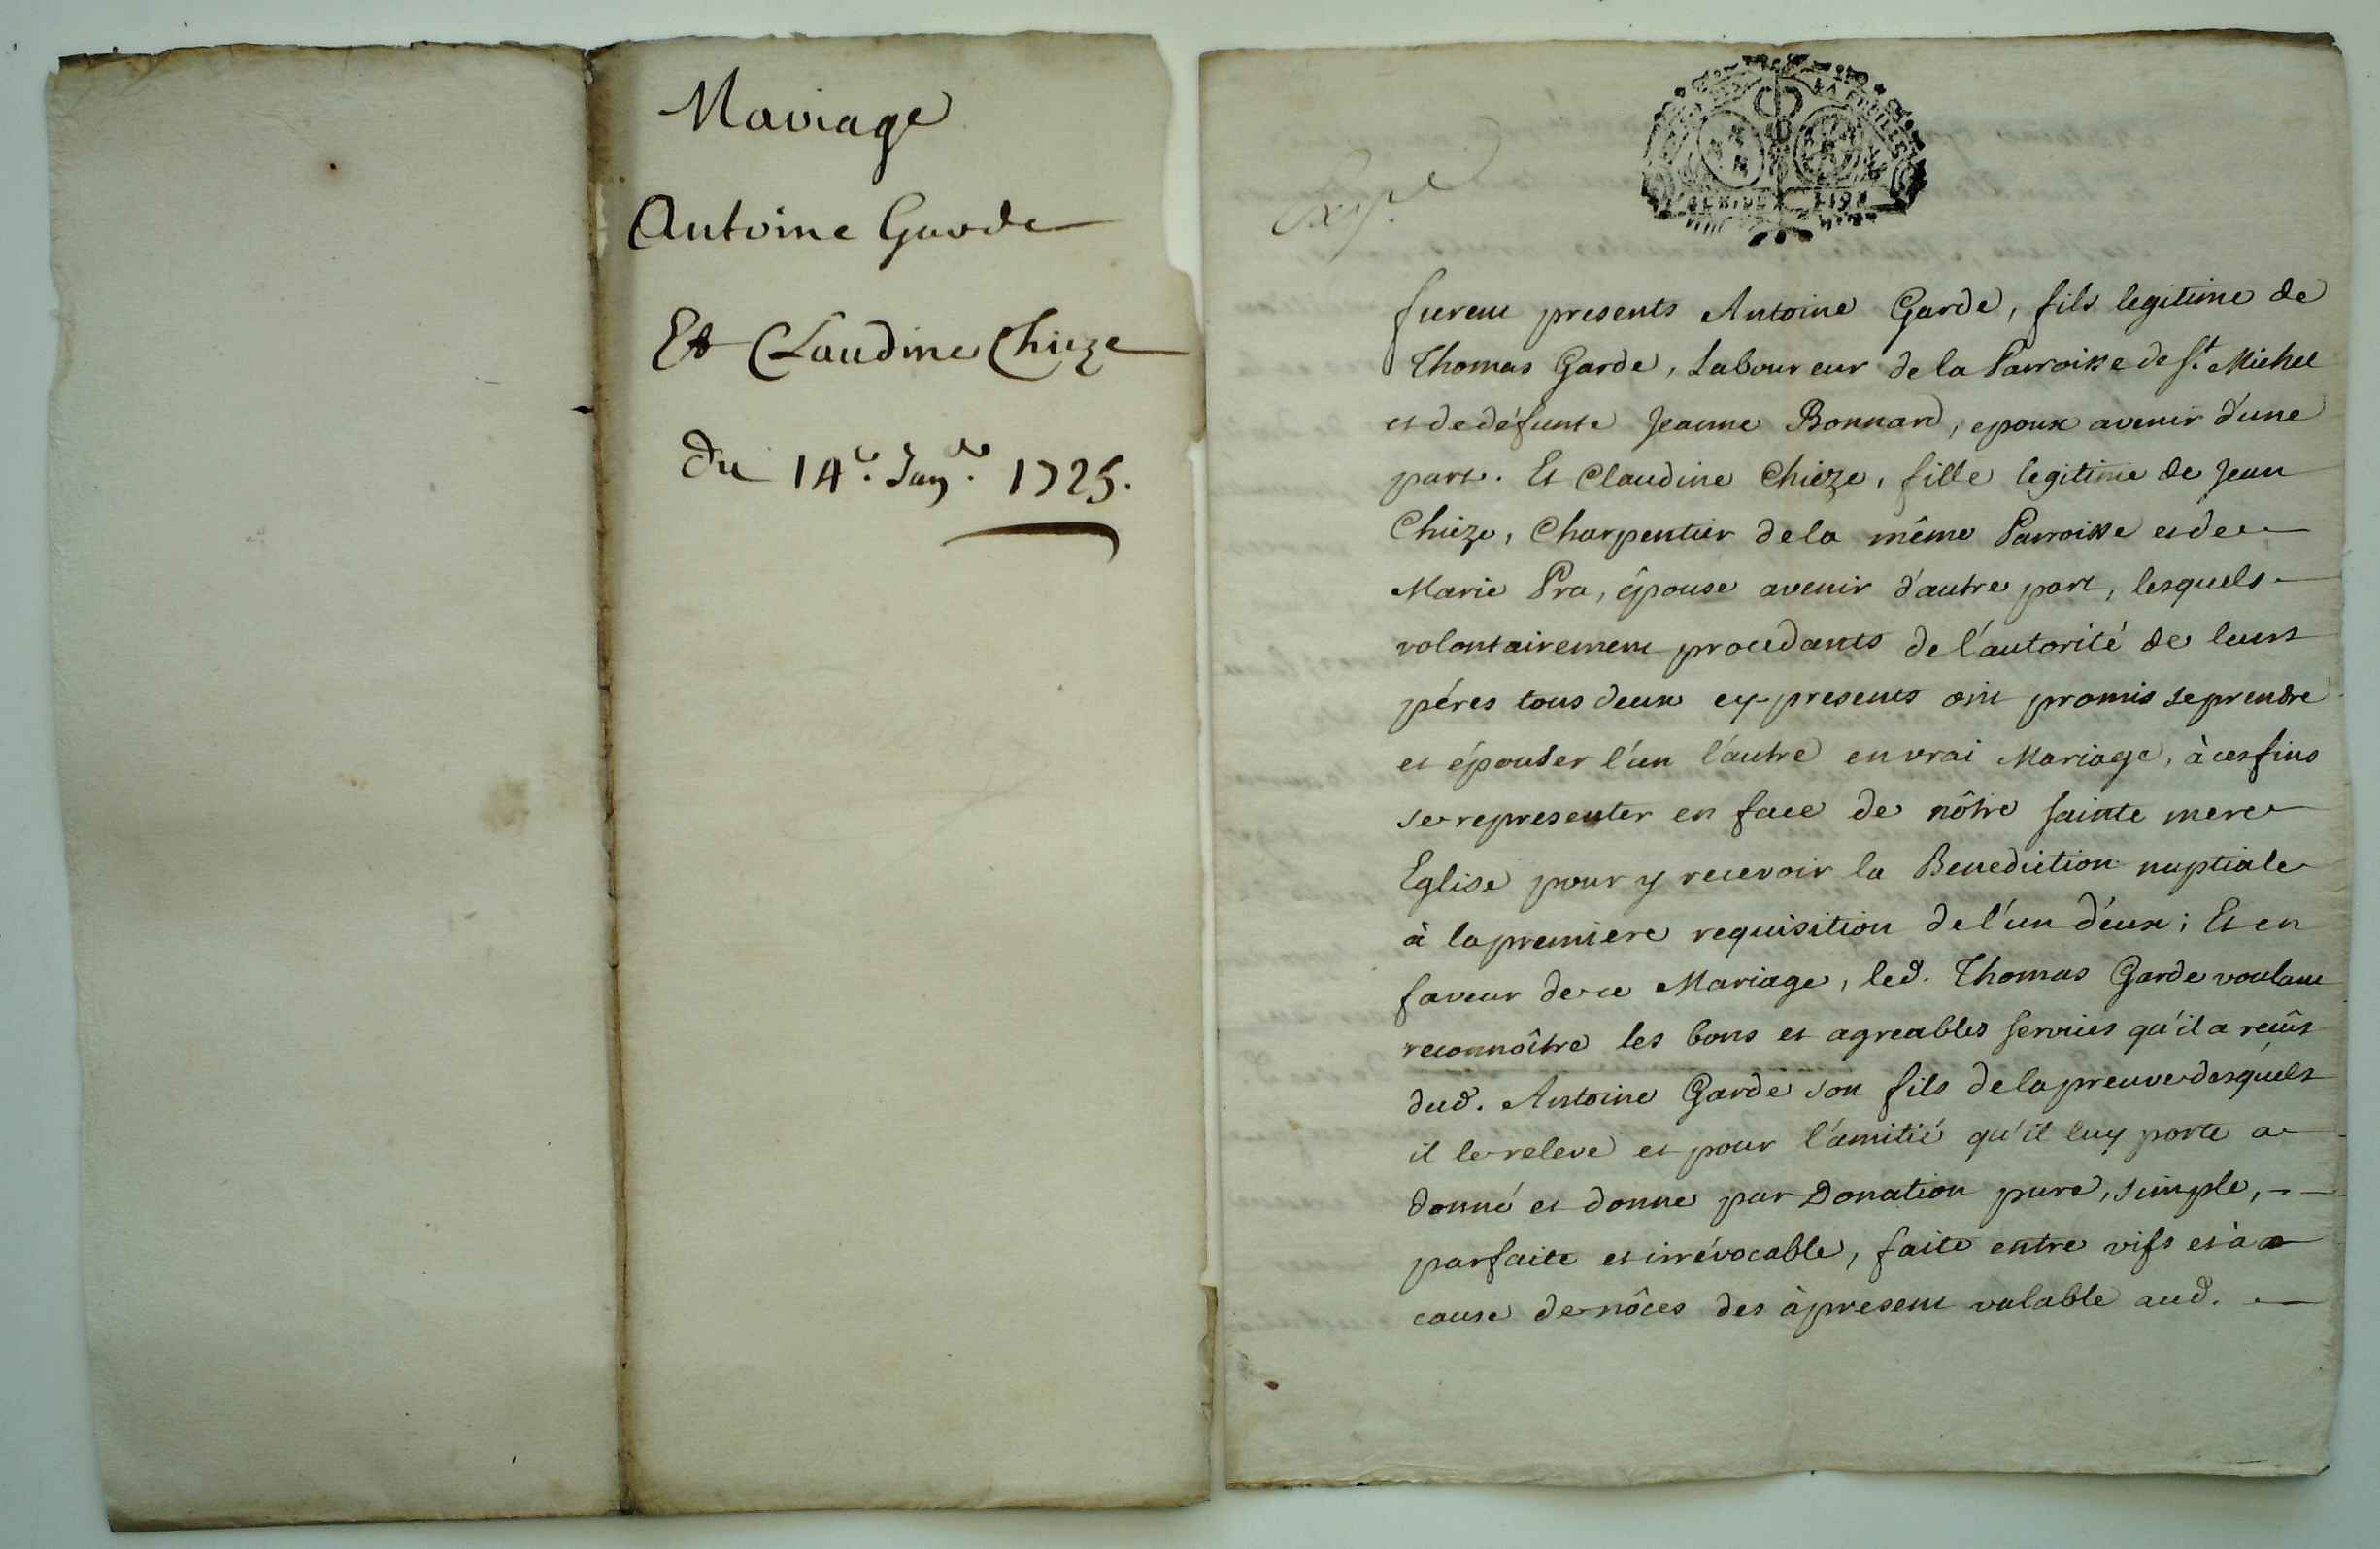 Mariage
Antoine Garde
Et Claudine Chieze
du 14e. Janv. 1725.
furent presents Antoine Garde, fils legitime de
Thomas Garde, Laboureur de la Parroisse de St. Michel
et de défunte Jeanne Bonnard, epoux avenir d'une
part. Et Claudine Chieze, fille legitime de Jean
Chieze, Charpentier de la même Parroisse et de
Marie Pra, épouse avenir d'autre part, lesquels
volontairement procedants de l'autorité de leurs
péres tous deux cy-presents ont promis se prendre
et épouser l'un l'autre en vrai Mariage, à ces fins
se representer en face de nôtre sainte mere
Eglise pour y recevoir la Benediction nuptiale
à la premiere requisition de l'un d'eux ; Et en
faveur de ce Mariage, led. Thomas Garde voulant
reconnoître les bons et agreables services qu'il a reçûs
dud. Antoine Garde son fils de la preuve desquels
il le releve et pour l'amitié qu'il luy porte a
donné et donne par Donation pure, simple,
parfaite et irrévocable, faite entre vifs et à
cause de nôces des àpresent valable aud.